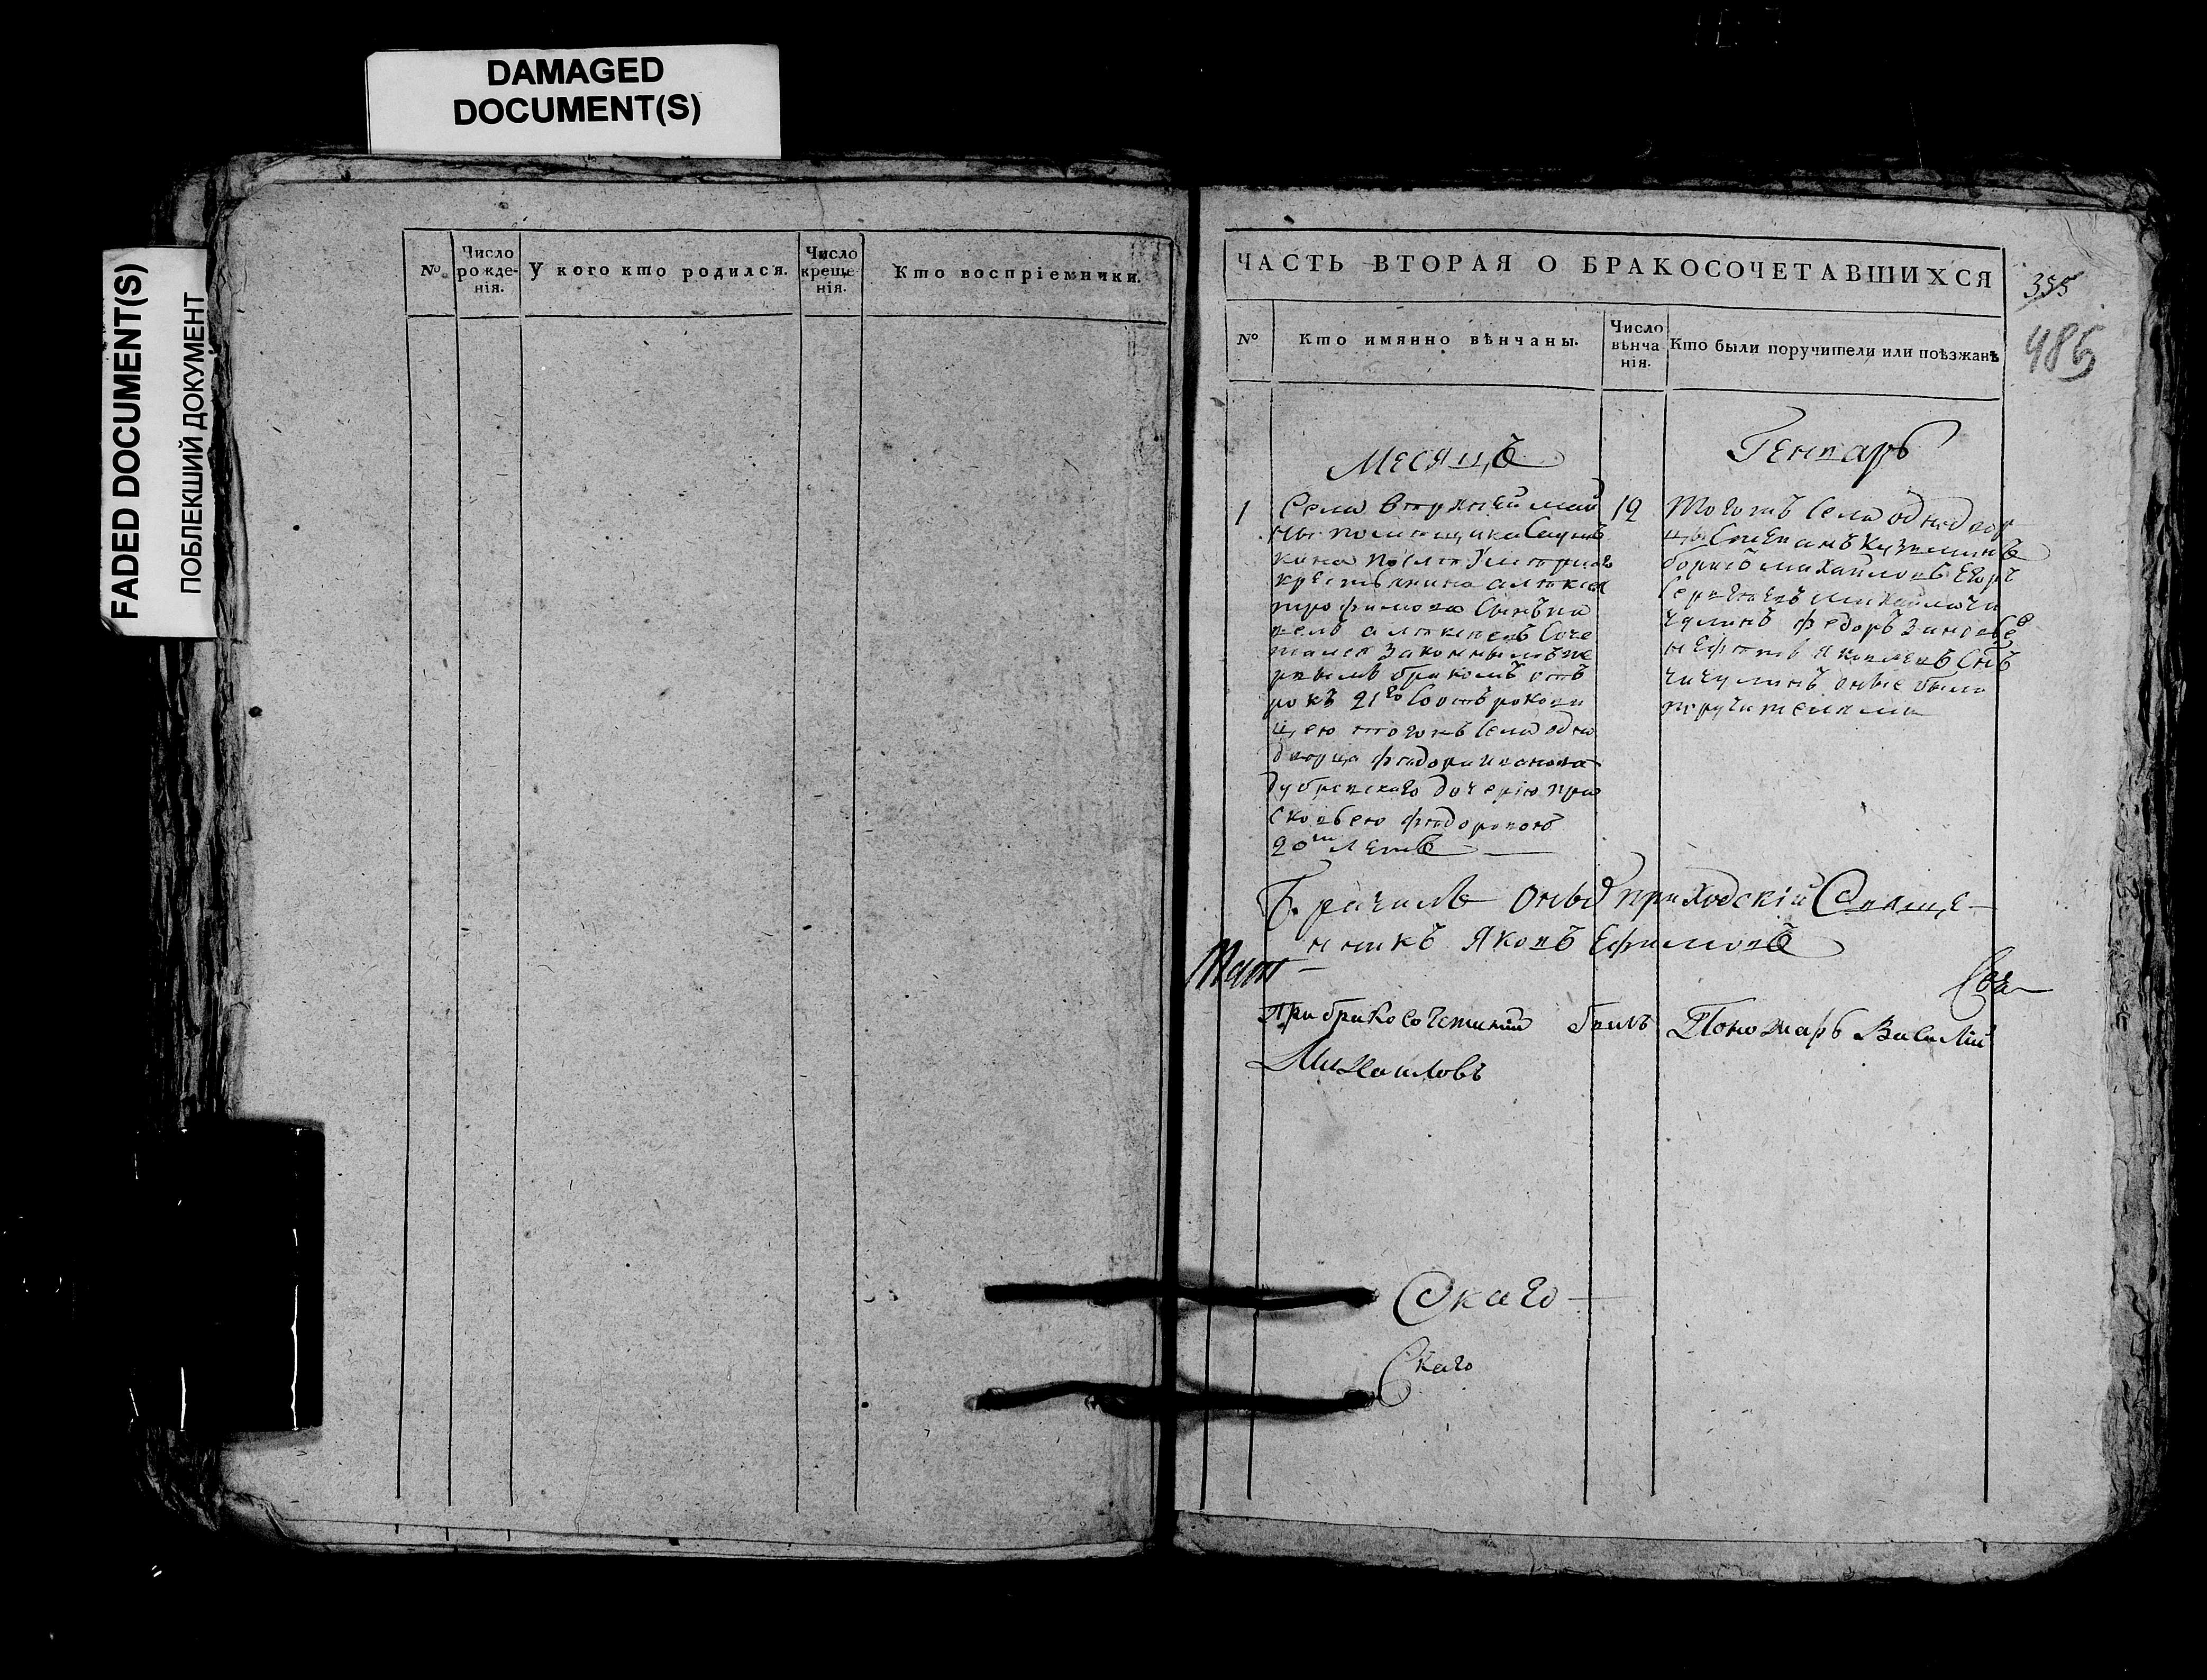 DAMAGED
DOCUMENT(S)
FADED DOCUMENT(S)
ПОБЛЕКШИЙ ДОКУМЕНТ
№
Число рожде-нія.
У кого кто родился.
Число креще-нія.
Кто воспріемники.
ЧАСТЬ ВТОРАЯ О БРАКОСОЧЕТАВШИХСЯ
355
486
№
Кто имянно вѣнчаны.
Число вѣнча нія.
Кто были поручители или поѣзжанѣ
Месяцъ
Генварь
1
Села
помещика
крестьянина алѣкса
трофимова Сынъ
алѣксеевъ Соче
тался Законнымъ пе
рвымъ бракомъ отъ
рокъ 21го Соотрокови
цею тогожъ Села одно
дворца фѣдора иванова
дочерію пра
сковьею фѣдоровою
20ти летъ
12
Тогожъ Села однодвор
цы Степанъ Кузминъ
борисъ михайловъ Егоръ
федоръ
яковлевъ Снъ
чичулинъ оные были
поручителями
Бračилъ оный приходскій Свяще-
нникъ Яковъ Ефимовъ
Свя
Прибракосочетаніи былъ Пономарь Василій
Михаиловъ
Скаго
Скаго